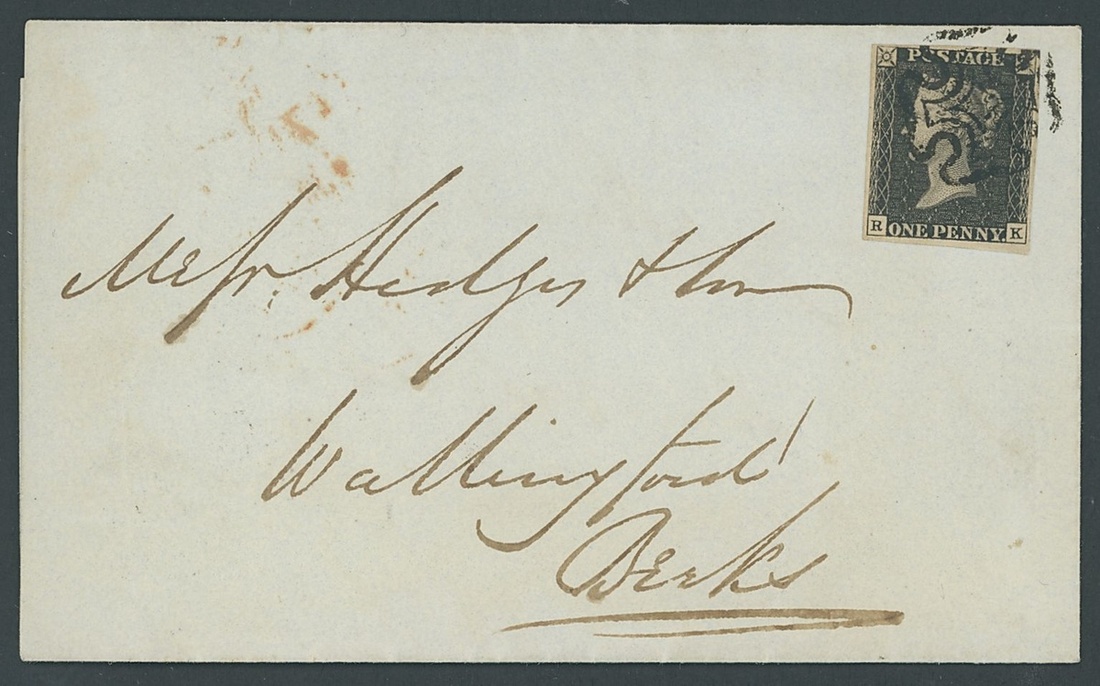 POSTAGE
R ONE PENNY. K
Messrs Hedges & Son
Wallingford
Berks